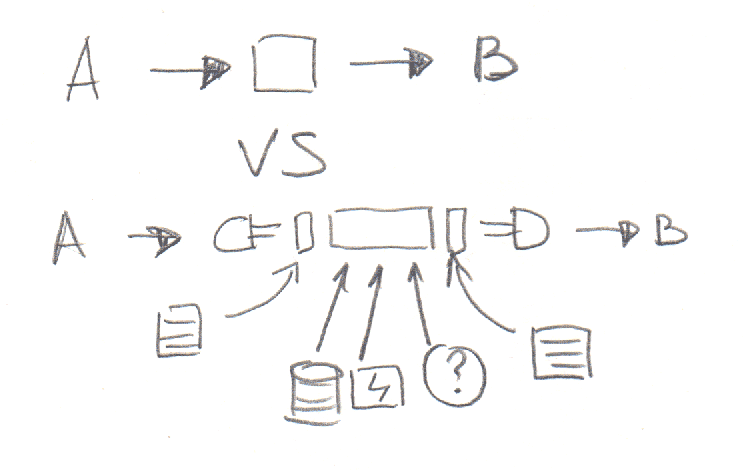 A B
VS
A B
?